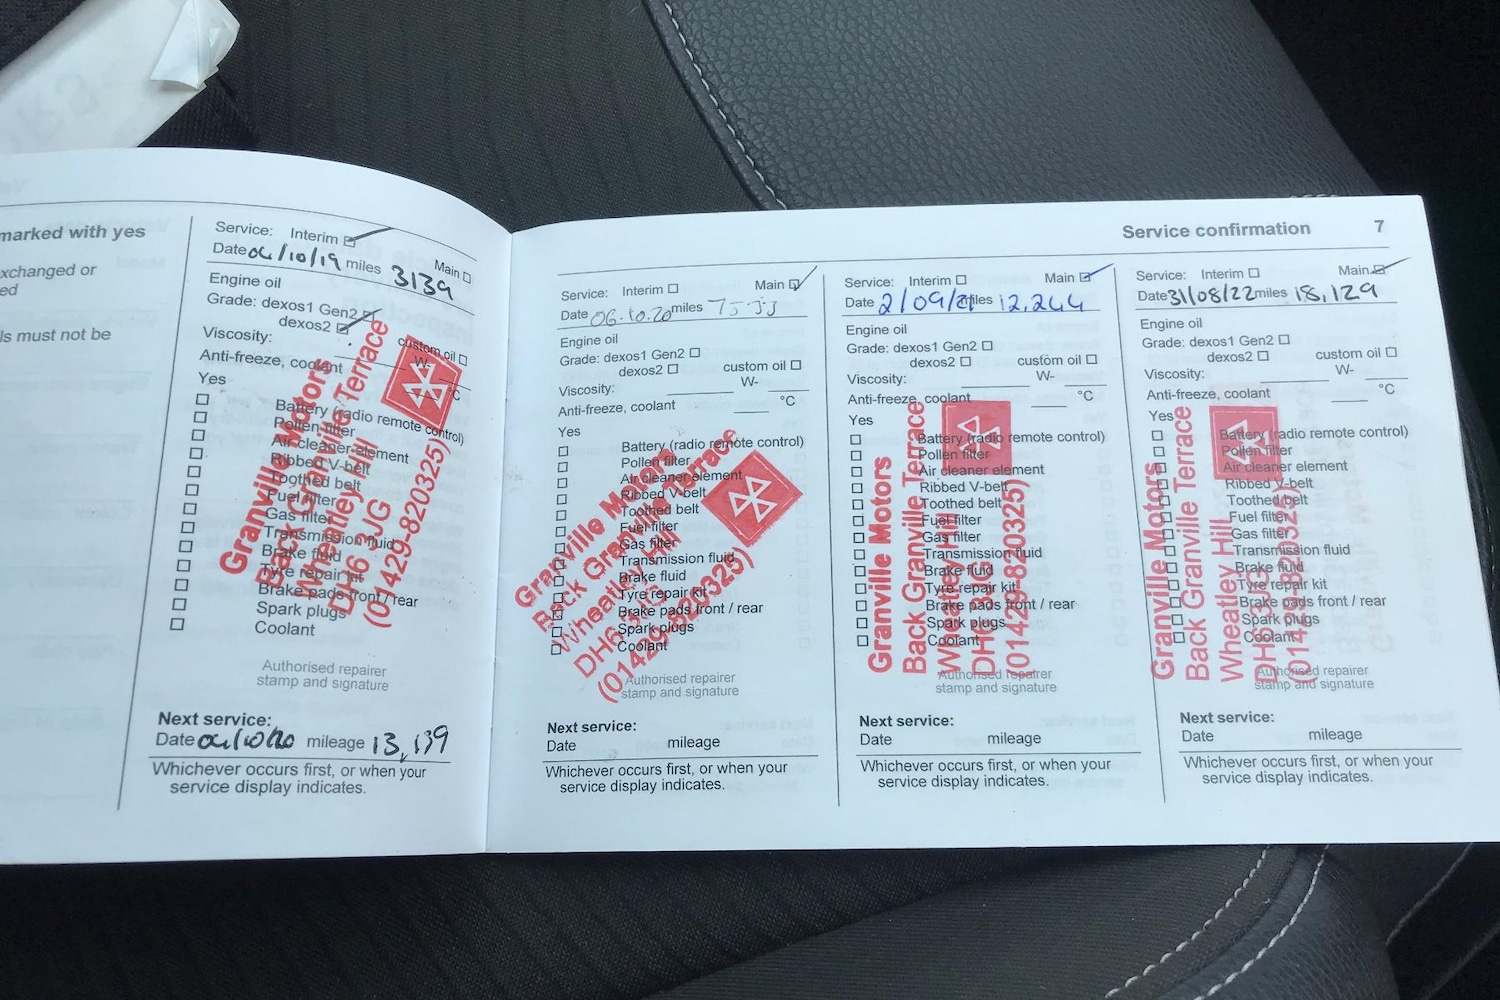 marked with yes
xchanged or
ed
ls must not be
Service: Interim
Date 04/10/19 miles 3139 Main
Engine oil
Grade: dexos1 Gen2
dexos2
custom oil
Viscosity: W-
Anti-freeze, coolant °C
Yes
Battery (radio remote control)
Pollen filter
Air cleaner element
Ribbed V-belt
Toothed belt
Fuel filter
Gas filter
Transmission fluid
Brake fluid
Tyre repair kit
Brake pads front / rear
Spark plugs
Coolant
Granville Motors
Back Granville Terrace
Wheatley Hill
DH6 3JG
(01429-820325)
Authorised repairer
stamp and signature
Next service:
Date 04/10/20 mileage 13,139
Whichever occurs first, or when your
service display indicates.
Service confirmation 7
Service: Interim Main
Date 06.10.20 miles
Engine oil
Grade: dexos1 Gen2
dexos2 custom oil
Viscosity: W-
Anti-freeze, coolant °C
Yes
Battery (radio remote control)
Pollen filter
Air cleaner element
Ribbed V-belt
Toothed belt
Fuel filter
Gas filter
Transmission fluid
Brake fluid
Tyre repair kit
Brake pads front / rear
Spark plugs
Coolant
Granville Motors
Back Granville Terrace
Wheatley Hill
DH6 3JG
(01429-820325)
Authorised repairer
stamp and signature
Next service:
Date mileage
Whichever occurs first, or when your
service display indicates.
Service: Interim Main
Date 2/09/21 miles 12,244
Engine oil
Grade: dexos1 Gen2
dexos2 custom oil
Viscosity: W-
Anti-freeze, coolant °C
Yes
Battery (radio remote control)
Pollen filter
Air cleaner element
Ribbed V-belt
Toothed belt
Fuel filter
Gas filter
Transmission fluid
Brake fluid
Tyre repair kit
Brake pads front / rear
Spark plugs
Coolant
Granville Motors
Back Granville Terrace
Wheatley Hill
DH6 3JG
(01429-820325)
Authorised repairer
stamp and signature
Next service:
Date mileage
Whichever occurs first, or when your
service display indicates.
Service: Interim Main
Date 31/08/22 miles 18,129
Engine oil
Grade: dexos1 Gen2
dexos2 custom oil
Viscosity: W-
Anti-freeze, coolant °C
Yes
Battery (radio remote control)
Pollen filter
Air cleaner element
Ribbed V-belt
Toothed belt
Fuel filter
Gas filter
Transmission fluid
Brake fluid
Tyre repair kit
Brake pads front / rear
Spark plugs
Coolant
Granville Motors
Back Granville Terrace
Wheatley Hill
DH6 3JG
(01429-820325)
Authorised repairer
stamp and signature
Next service:
Date mileage
Whichever occurs first, or when your
service display indicates.